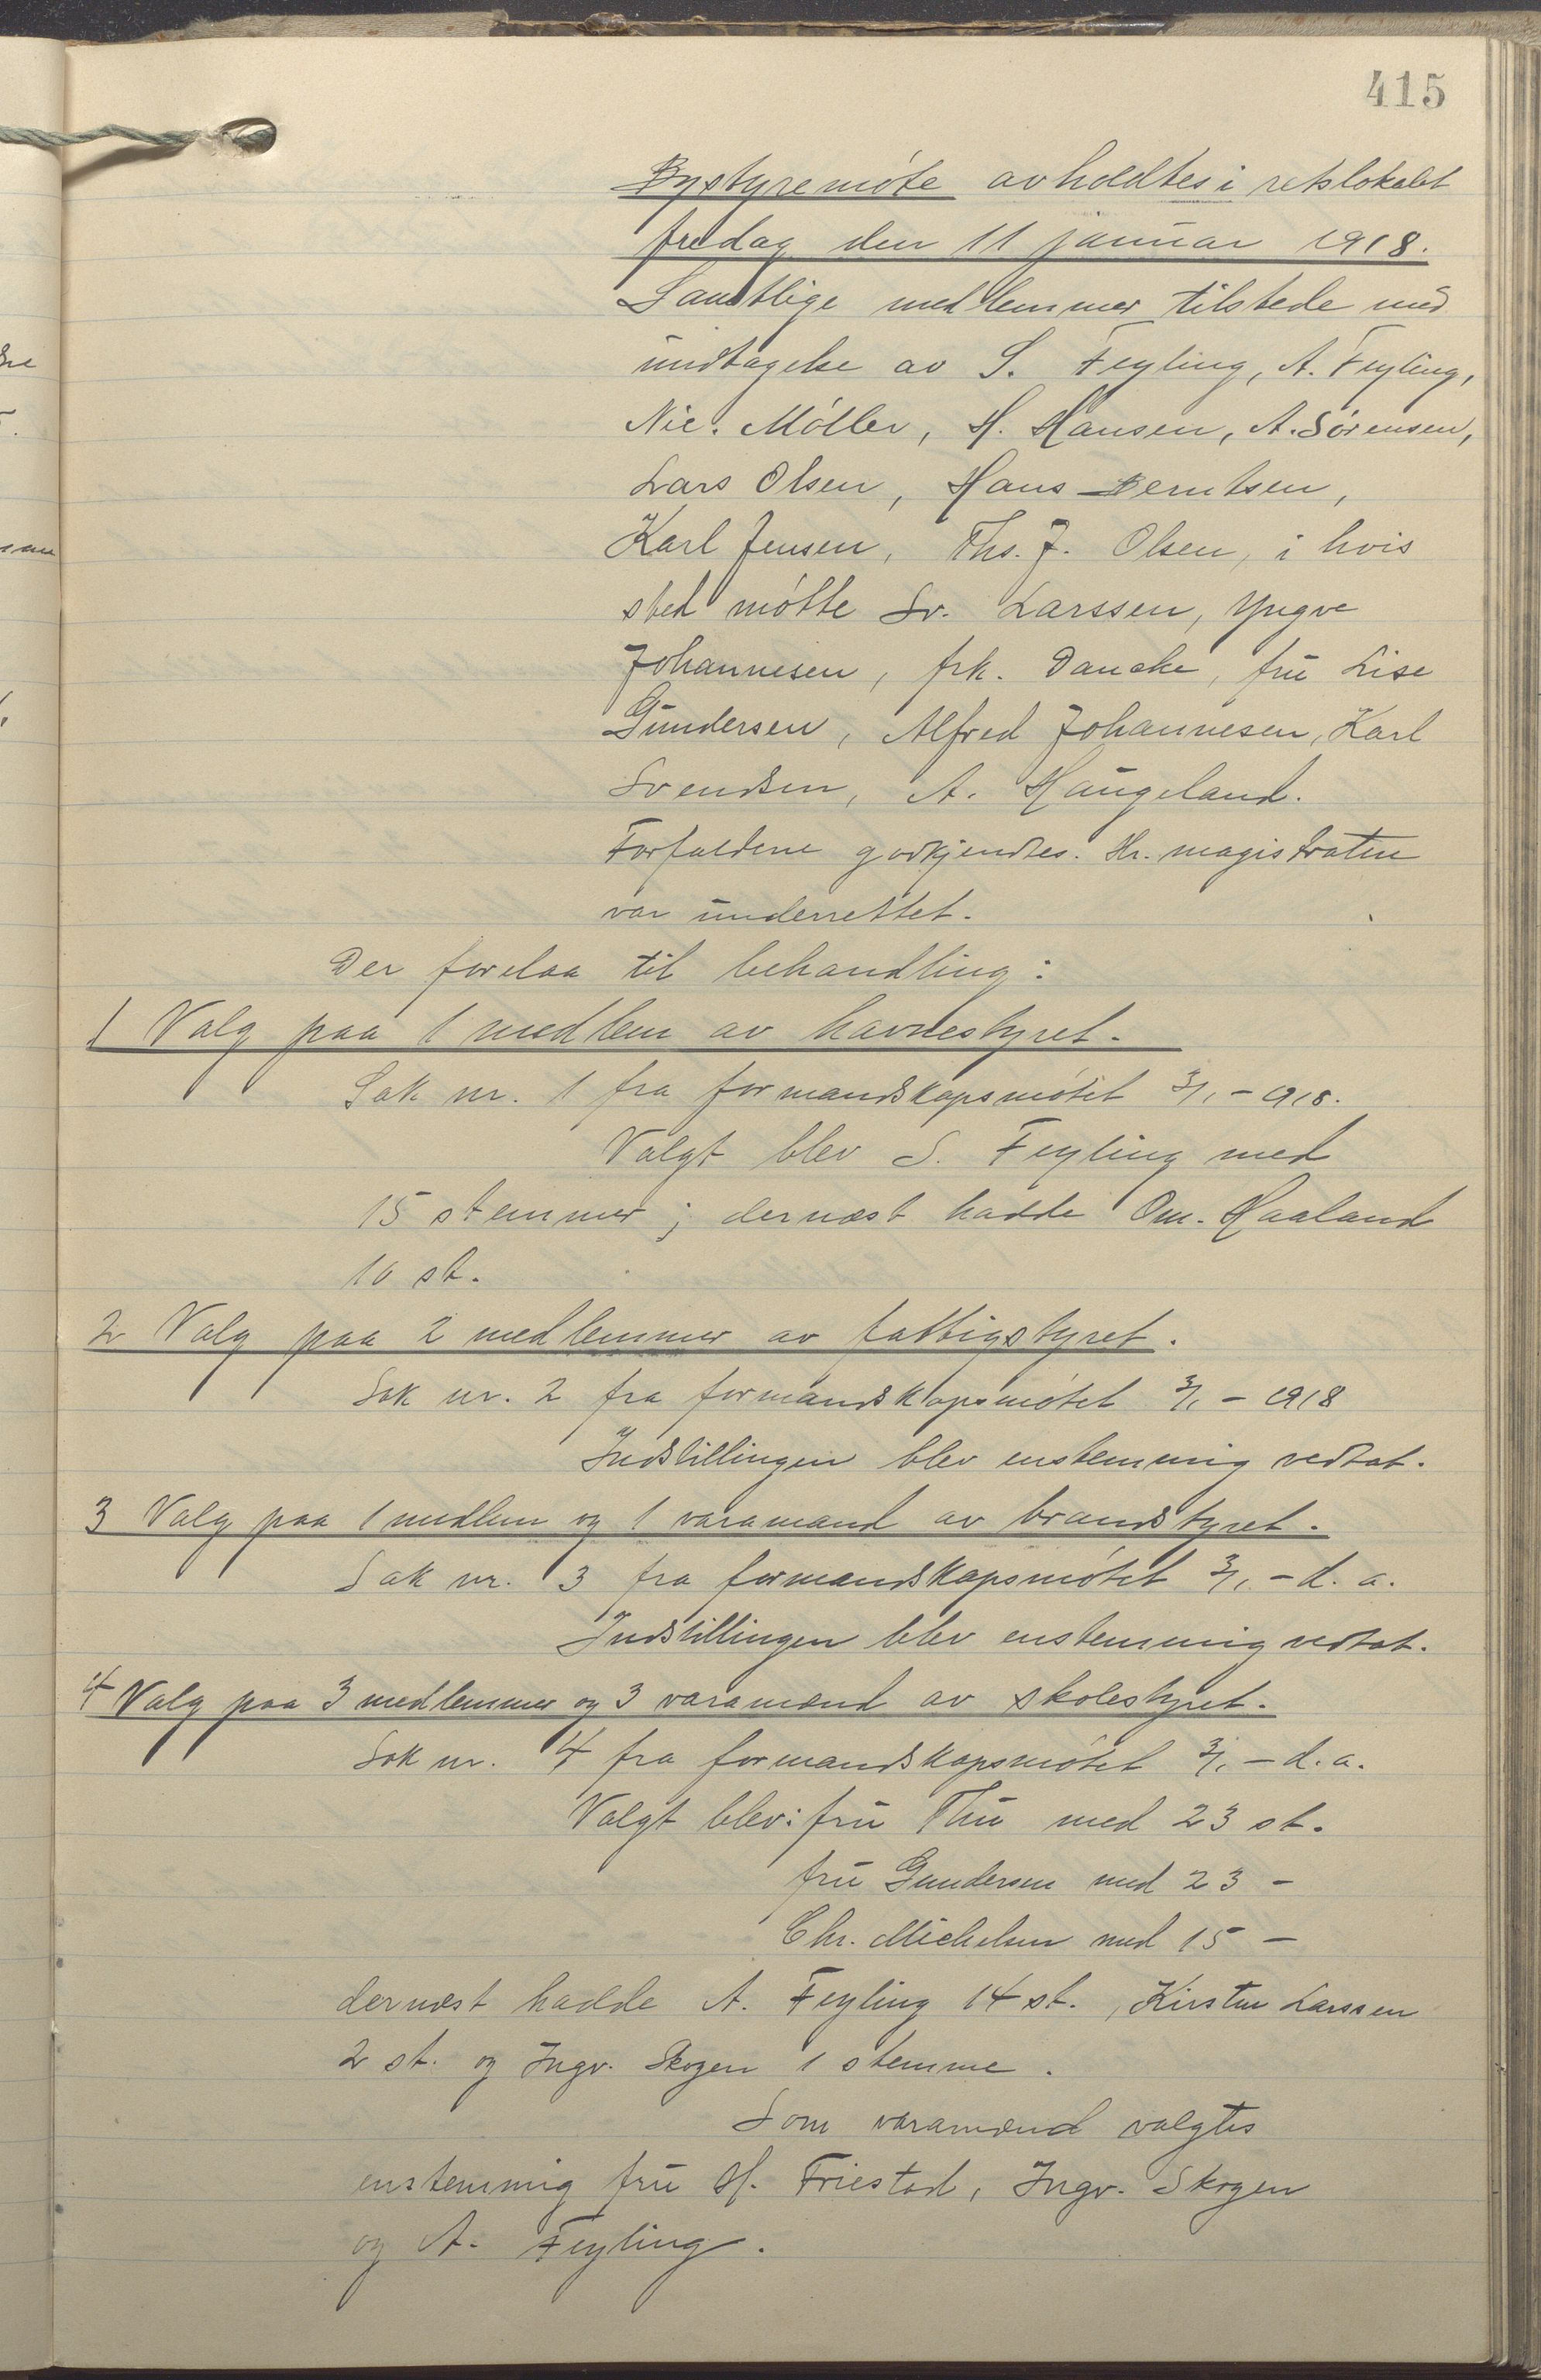 415
Bystyremöte avholdtes i retslokalet
fredag den 11 januar 1918.
Samtlige medlemmer tilstede med
undtagelse av S. Feyling, A. Feyling,
Nic. Möller, H. Hansen, A. Sörensen,
Lars Olsen, Hans Berntsen,
Karl Jensen, Ths. J. Olsen, i hvis
sted mötte Sv. Larssen, Yngve
Johannesen, frk. Dancke, fru Lise
Gundersen, Alfred Johannesen, Karl
Svendsen, A. Haugeland.
Forfaldene godkjendtes. Hr. magistraten
var underrettet.
Der forelaa til behandling:
1 Valg paa 1 medlem av havnestyret.
Sak nr. 1 fra formandskapsmötet 3/1 - 1918.
Valgt blev S. Feyling med
15 stemmer; dernæst hadde Om. Haaland
10 st.
2 Valg paa 2 medlemmer av fattigstyret.
Sak nr. 2 fra formandskapsmötet 3/1 - 1918
Indstillingen blev enstemmig vedtat.
3 Valg paa 1 medlem og 1 varamand av brandstyret.
Sak nr. 3 fra formandskapsmötet 3/1 - d. a.
Indstillingen blev enstemmig vedtat.
4 Valg paa 3 medlemmer og 3 varamænd av skolestyret.
Sak nr. 4 fra formandskapsmötet 3/1 - d. a.
Valgt blev: fru Thu med 23 st.
fru Gundersen med 23 -
Chr. Michelsen med 15 -
dernæst hadde A. Feyling 14 st., Kirsten Larssen
2 st. og Ingv. Skogen 1 stemme.
Som varamænd valgtes
enstemmig fru H. Friestad, Ingv. Skogen
og A. Feyling.